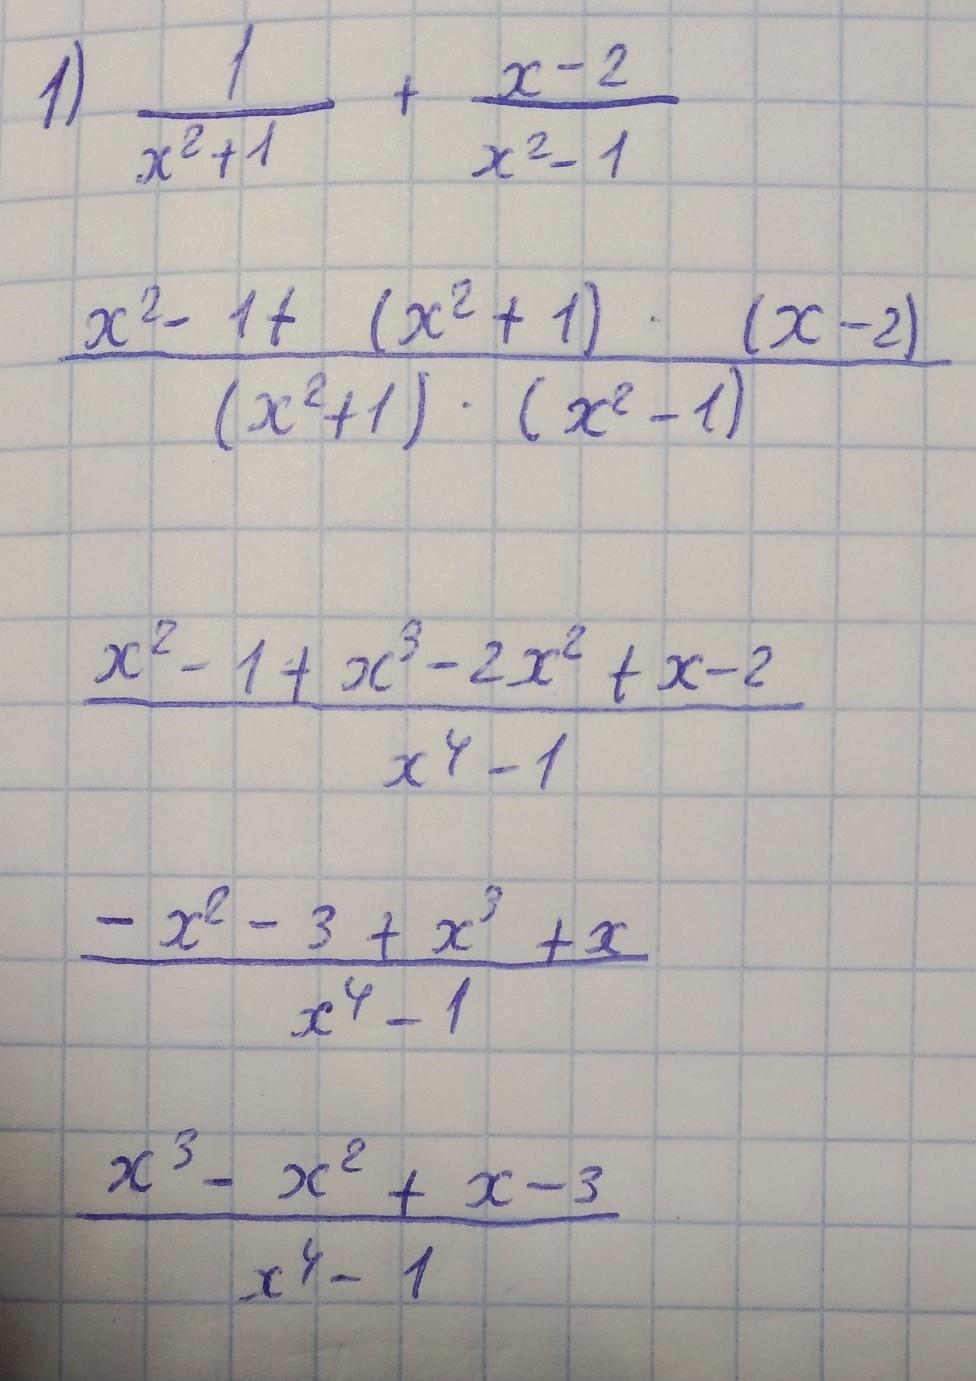 1) 1/(x²+1) + (x-2)/(x²-1)
(x²-1+(x²+1)·(x-2))/((x²+1)·(x²-1))
(x²-1+x³-2x²+x-2)/(x⁴-1)
(-x²-3+x³+x)/(x⁴-1)
(x³-x²+x-3)/(x⁴-1)